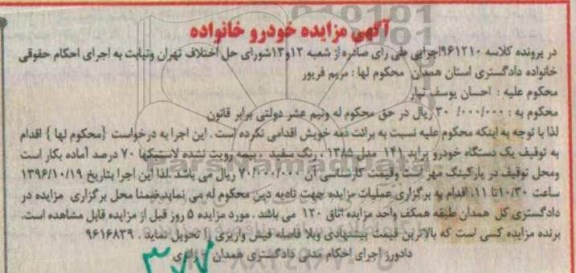 آگهی مزایده خودرو خانواده
در پرونده کلاسه ۹۶۱۲۱۰اجرایی طی رای صادره از شعبه ۱۲و۱۳شورای حل اختلاف تهران ونیابت به اجرای احکام حقوقی
خانواده دادگستری استان همدان محکوم لها : مریم فریور
محکوم علیه : احسان یوسف تبار
محکوم به : ۳۰/۰۰۰/۰۰۰ ریال در حق محکوم له ونیم عشر دولتی برابر قانون
لذا با توجه به اینکه محکوم علیه نسبت به برائت ذمه خویش اقدامی نکرده است . این اجرا به درخواست {محکوم لها } اقدام
به توقیف یک دستگاه خودرو پراید ۱۴۱ مدل ۱۳۸۵ رنگ سفید _ بیمه رویت نشده لاستیکها ۷۰ درصد آماده بکار است
ومحل توقیف در پارکینگ مهر است وقیمت کارشناسی آن ۷۰/۰۰۰/۰۰۰ ریال می باشد .لذا این اجرا بتاریخ ۱۳۹۶/۱۰/۱۹
ساعت ۱۰/۳۰تا ۱۱، اقدام به برگزاری عملیات مزایده جهت تادیه دین محکوم له می نمایدضمنا محل برگزاری مزایده در
دادگستری کل همدان طبقه همکف واحد مزایده اتاق ۱۲۰ می باشد . مورد مزایده ۵ روز قبل از مزایده قابل مشاهده است.
برنده مزایده کسی است که بالاترین قیمت پیشنهادی وبلا فاصله فیش واریزی را تحویل نماید . ۹۶۱۶۸۳۹
دادورز اجرای احکام مدنی دادگستری همدان -
۳۷۷